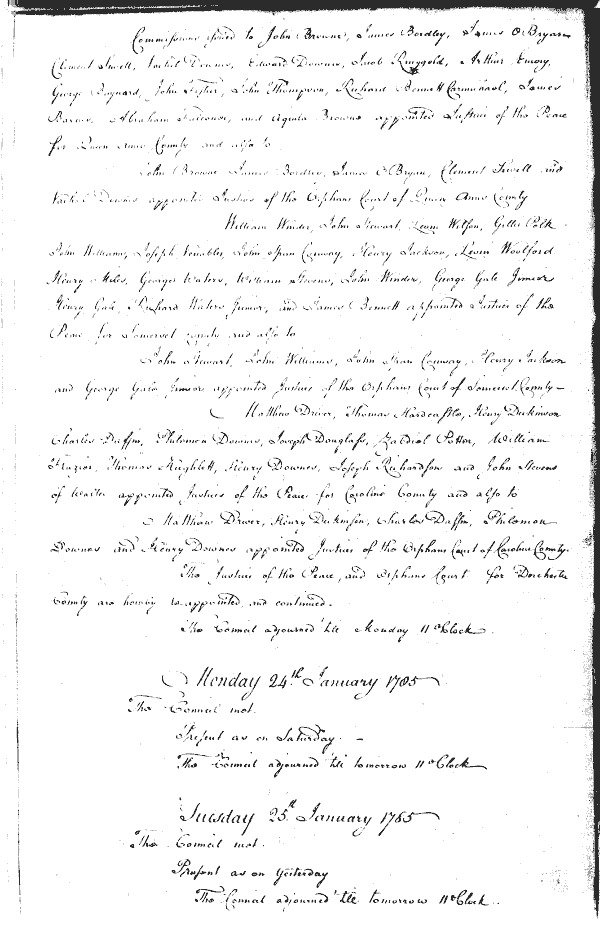 Commissions issued to John Browne, James Bordley, James O Bryan
Clement Sewell, Vachel Downes, Edward Downes, Jacob Ringgold, Arthur Emory,
George Baynard, John Fisher, John Thompson, Richard Bennett Carmichael, James
Barnes, Abraham Falconer, and Aquila Browne appointed Justices of the Peace
for Queen Anns County and also to
John Browne James Bordley, James O Bryan, Clement Sewell and
Vachel Downes appointed Justices of the Orphans Court of Queen Anns County
William Winder, John Stewart, Levin Wilson, Gillis Polk
John Williams, Joseph Venables, John Span Conway, Henry Jackson, Levin Woolford
Henry Miles, George Waters, William Stevens, John Winder, George Gale Junior
Henry Gale, Richard Waters Junior, and James Bennett appointed Justices of the
Peace for Somerset County and also to
John Stewart, John Williams, John Span Conway, Henry Jackson
and George Gale Junior appointed Justices of the Orphans Court of Somerset County -
Matthew Driver, Thomas Hardcastle, Henry Dickinson
Charles Daffin, Philemon Downes, Joseph Douglass, Zabdiel Potter, William
Frazier, Thomas Hughlett, Henry Downes, Joseph Richardson and John Stevens
of Walter appointed Justices of the Peace for Caroline County and also to
Matthew Driver, Henry Dickinson, Charles Daffin, Philemon
Downes and Henry Downes appointed Justices of the Orphans Court of Caroline County.
The Justices of the Peace, and Orphans Court for Dorchester
County are hereby re appointed and continued.
The Council adjourned 'till Monday 11 oClock.
Monday 24th January 1785
The Council met.
Present as on Saturday. -
The Council adjourned 'till tomorrow 11 oClock
Tuesday 25th January 1785
The Council met.
Present as on Yesterday
The Council adjourned 'till tomorrow 11 oClock.